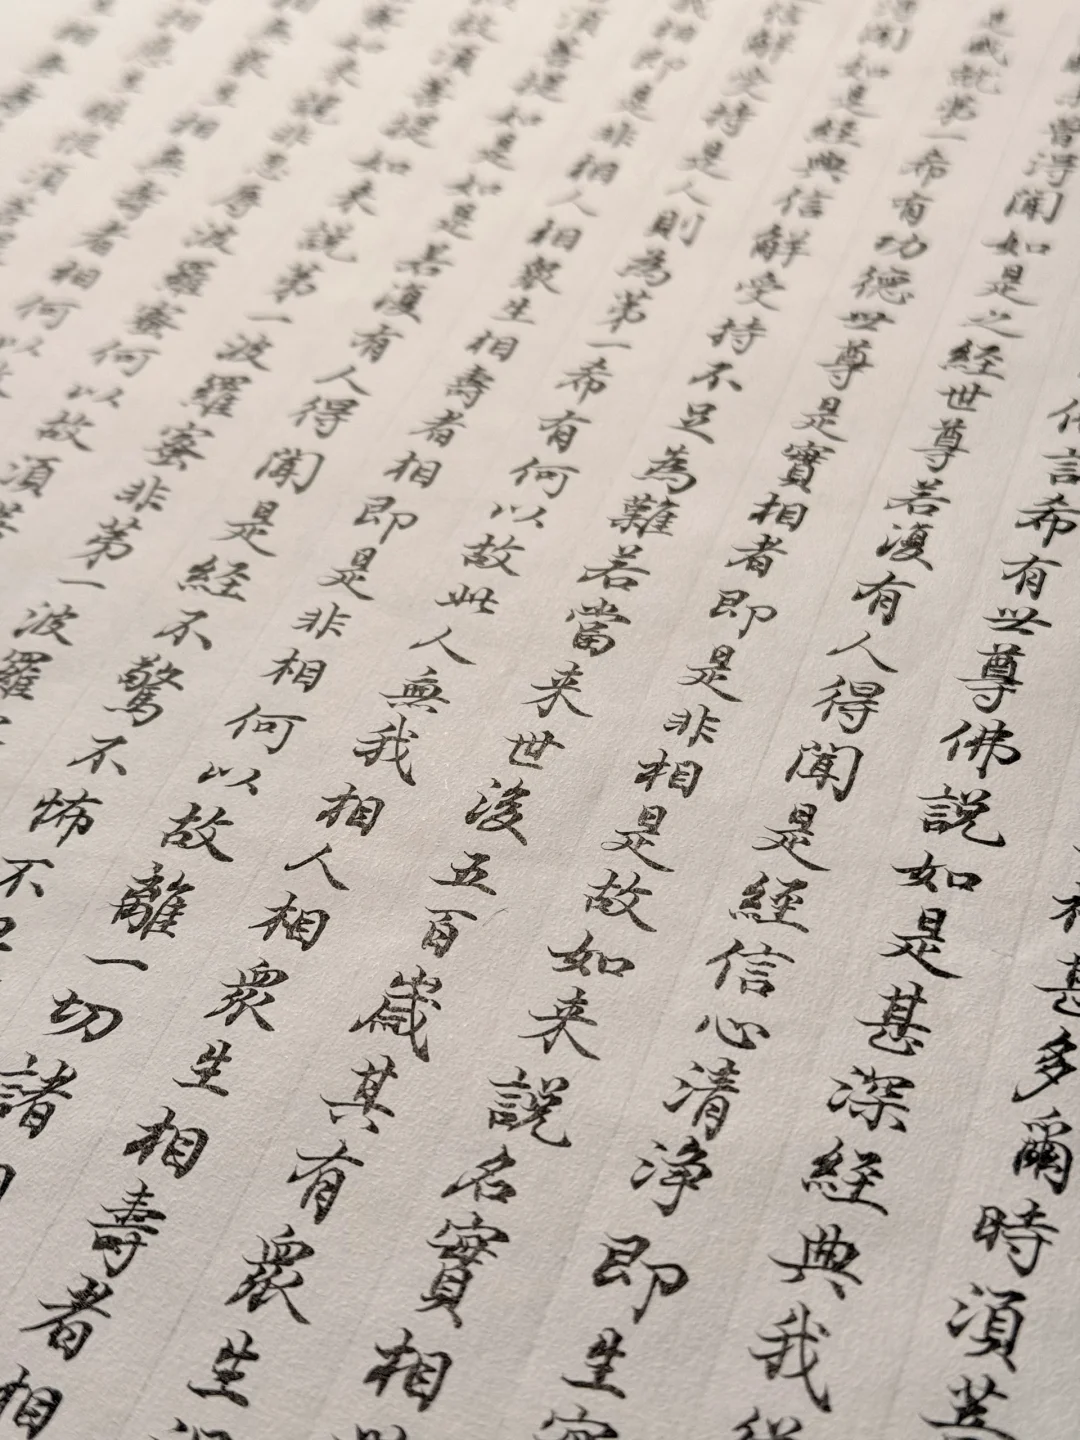 甚多爾時須菩
言希有世尊佛説如是甚深経典我従
曾得聞如是之経世尊若復有人得聞是経信心清浄即生實
是成就第一希有功德世尊是實相者即是非相是故如来説名實相世
聞如是経典信解受持不足為難若當来世後五百歲其有眾生得
信解受持是人則為第一希有何以故此人無我相人相眾生相壽者相
我相即是非相人相眾生相壽者相即是非相何以故離一切諸相
須菩提如是如是若復有人得聞是経不驚不怖不
故須菩提如来説第一波羅蜜非第一波羅
如来説非忍辱波羅蜜何以故須菩
相無眾生相無壽者相何以故
相應生瞋恨須菩提